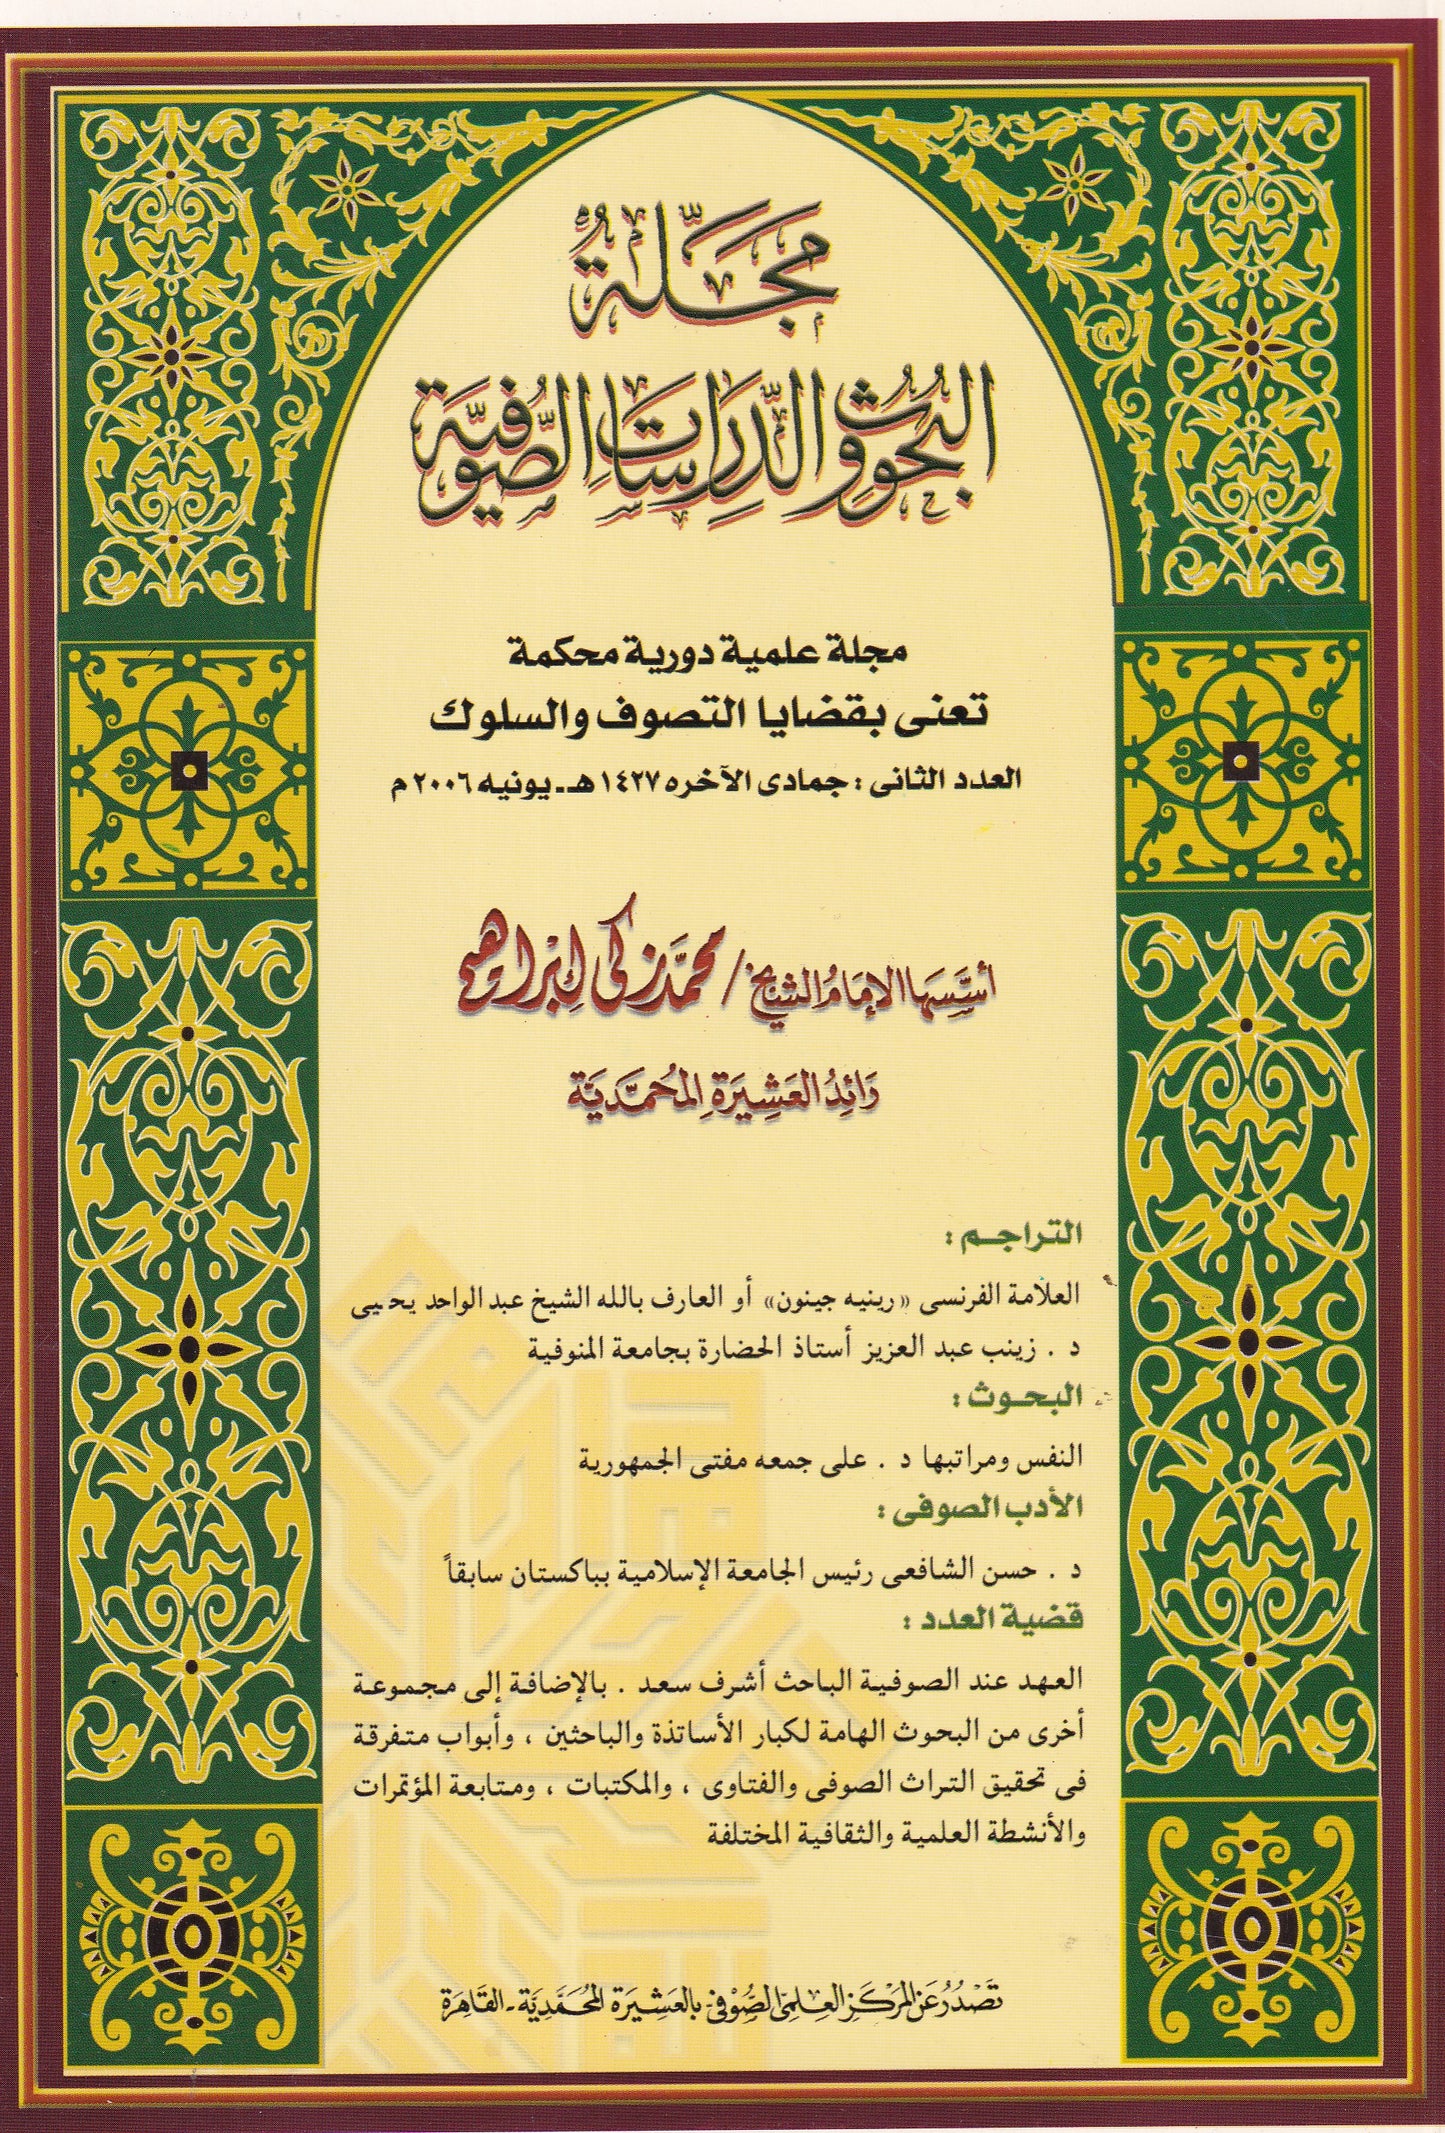 مَجَلَّةُ
البُحُوثُ وَالدِّرَاسَاتِ الصُّوفِيَّة
مجلة علمية دورية محكمة
تعنى بقضايا التصوف والسلوك
العدد الثانى : جمادى الآخره ١٤٢٧ هـ - يونيه ٢٠٠٦ م
أسَّسَهَا الإمَامُ الشيخ / محمَّد زكى إبْراهيم
رَائِدُ العَشِيرَةِ المُحمَّدِيَّة
التراجم :
العلامة الفرنسى «رينيه جينون» أو العارف بالله الشيخ عبد الواحد يحيى
د . زينب عبد العزيز أستاذ الحضارة بجامعة المنوفية
البحوث :
النفس ومراتبها د . على جمعه مفتى الجمهورية
الأدب الصوفى :
د . حسن الشافعى رئيس الجامعة الإسلامية بباكستان سابقاً
قضية العدد :
العهد عند الصوفية الباحث أشرف سعد . بالإضافة إلى مجموعة
أخرى من البحوث الهامة لكبار الأساتذة والباحثين ، وأبواب متفرقة
فى تحقيق التراث الصوفى والفتاوى ، والمكتبات ، ومتابعة المؤتمرات
والأنشطة العلمية والثقافية المختلفة
تَصْدُرُ عَن المَرْكَزِ العِلمِى الصُّوْفِى بالعَشِيرَةِ المُحَمَّدِيَّة - القَاهِرَة